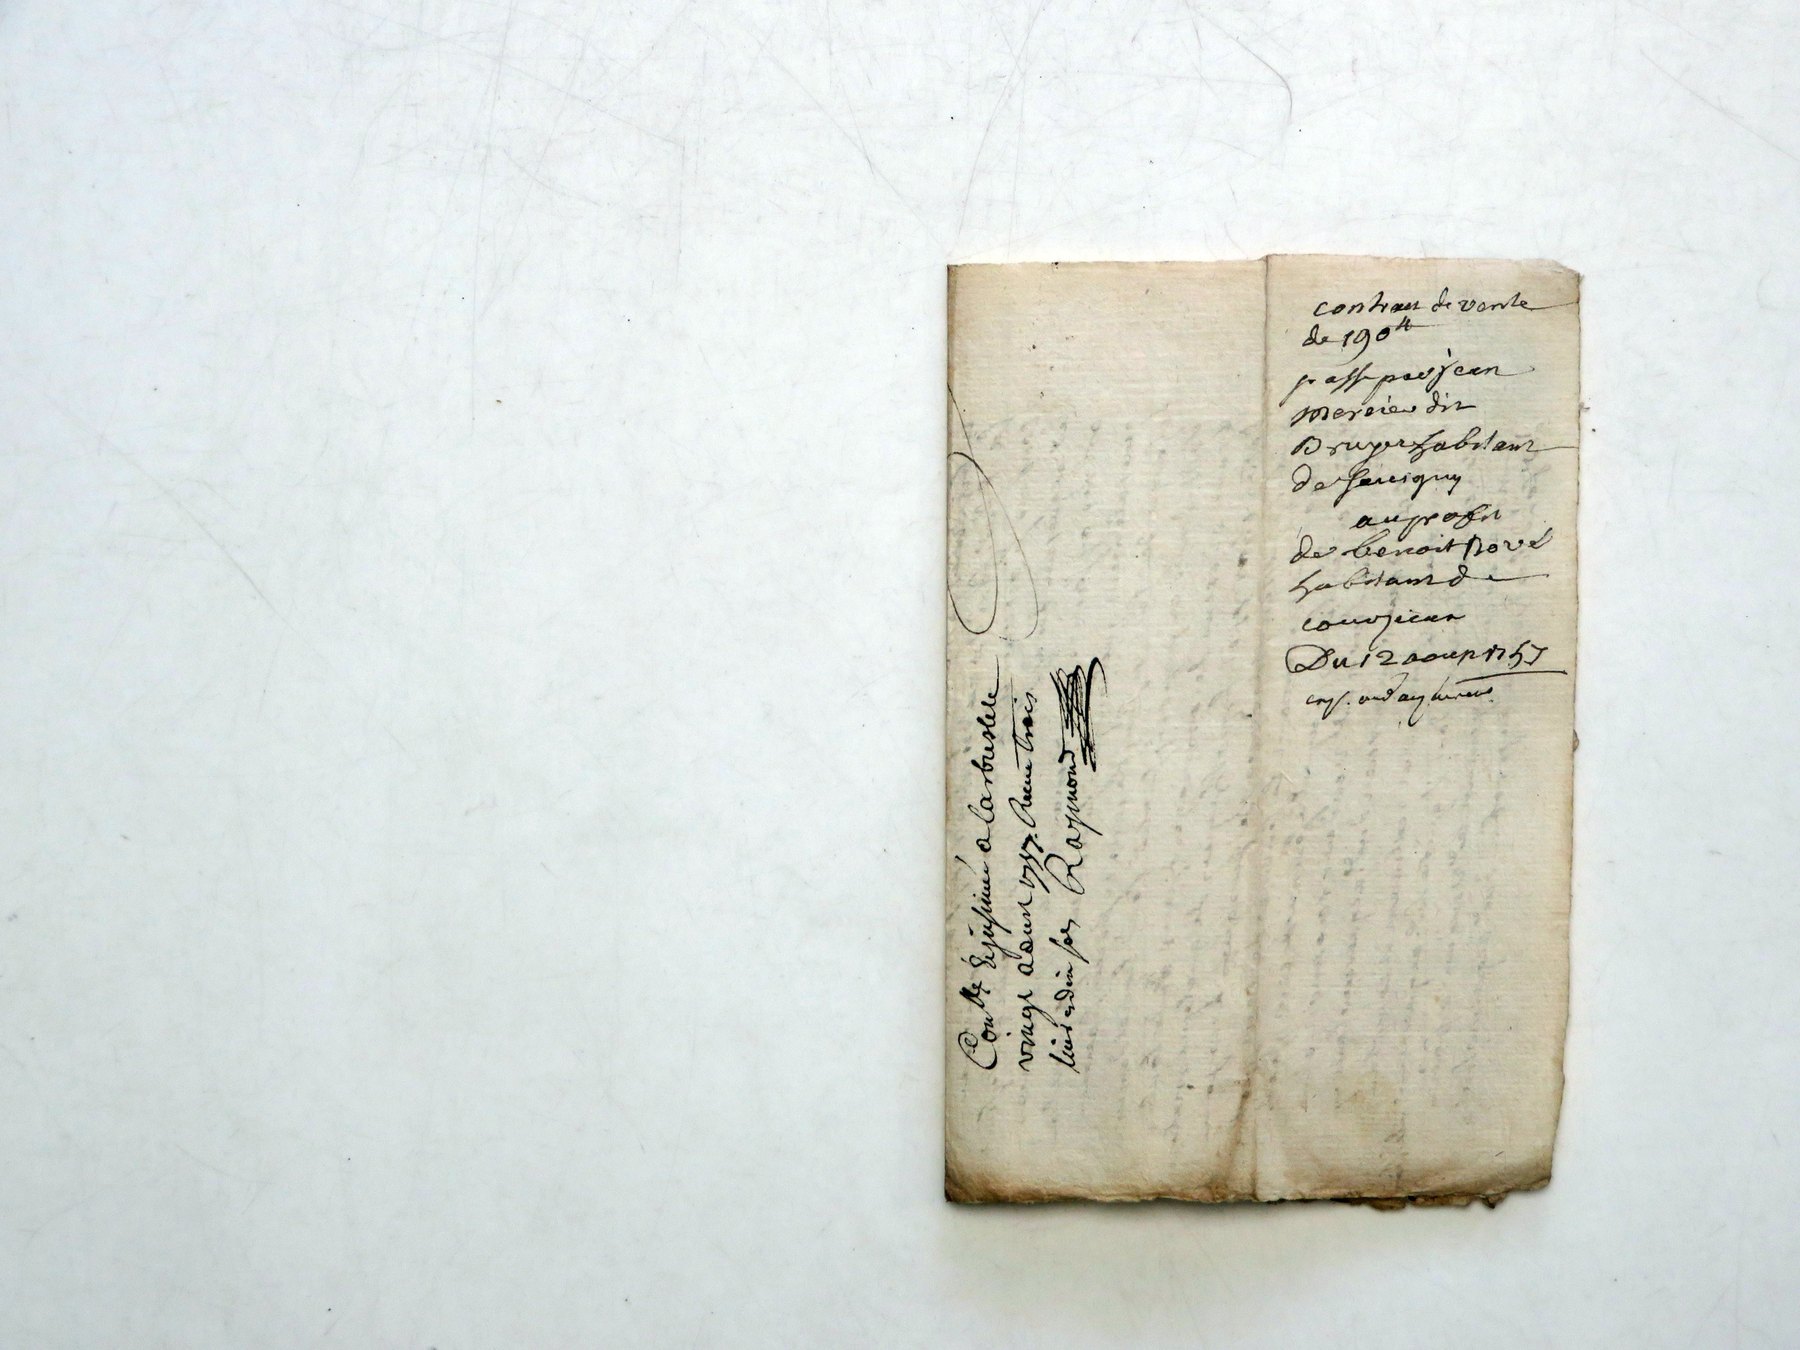 contract de vente
de 190 ₶
passé par jean
mercier dit
Bruyer habitant
de Savigny
au profit
de benoit Nové
habitant de
courzieux
Du 12 aoust 1757
Conllé Et insinué a Larbresle
vingt aoust 1757. Receu trois
livres dix sols Raymond